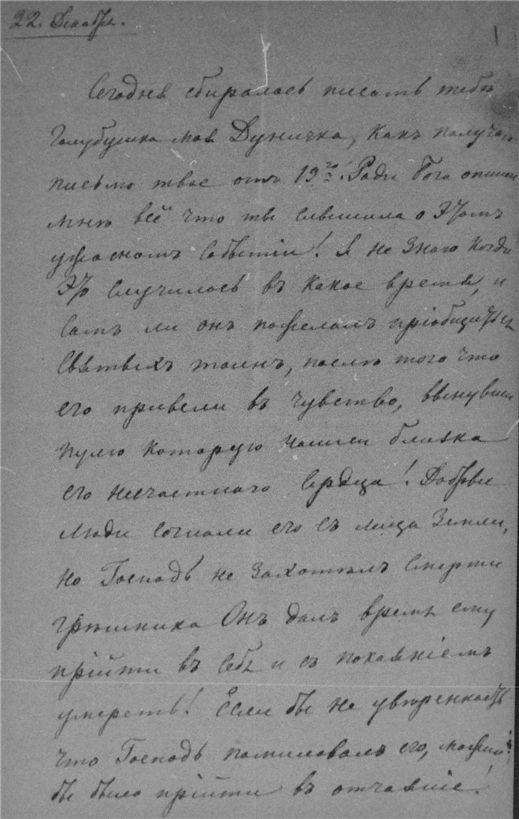 22. Декабрь.
1
Сегодня сбиралась писать тебѣ
Голубушка моя Дуничка, какъ получаю
письмо твое отъ 19го. Ради Бога опиши
мнѣ всё что ты слышала о этомъ
ужасномъ событіи! Я не знаю когда
это случилось въ какое время, и
самъ ли онъ пожелалъ пріобщиться
Святыхъ таинъ, послѣ того что
его привели въ чувство, вынувши
пулю которую нашли близка
его несчастнаго сердца! Добрые
люди согнали его съ лица Земли,
но Господь не захотѣлъ смерти
грѣшника Онъ далъ время ему
прійти въ себѣ и съ покаяніемъ
умереть! Если бы не увѣренность
что Господь помиловалъ его, можно
бы было прійти въ отчаяніе!